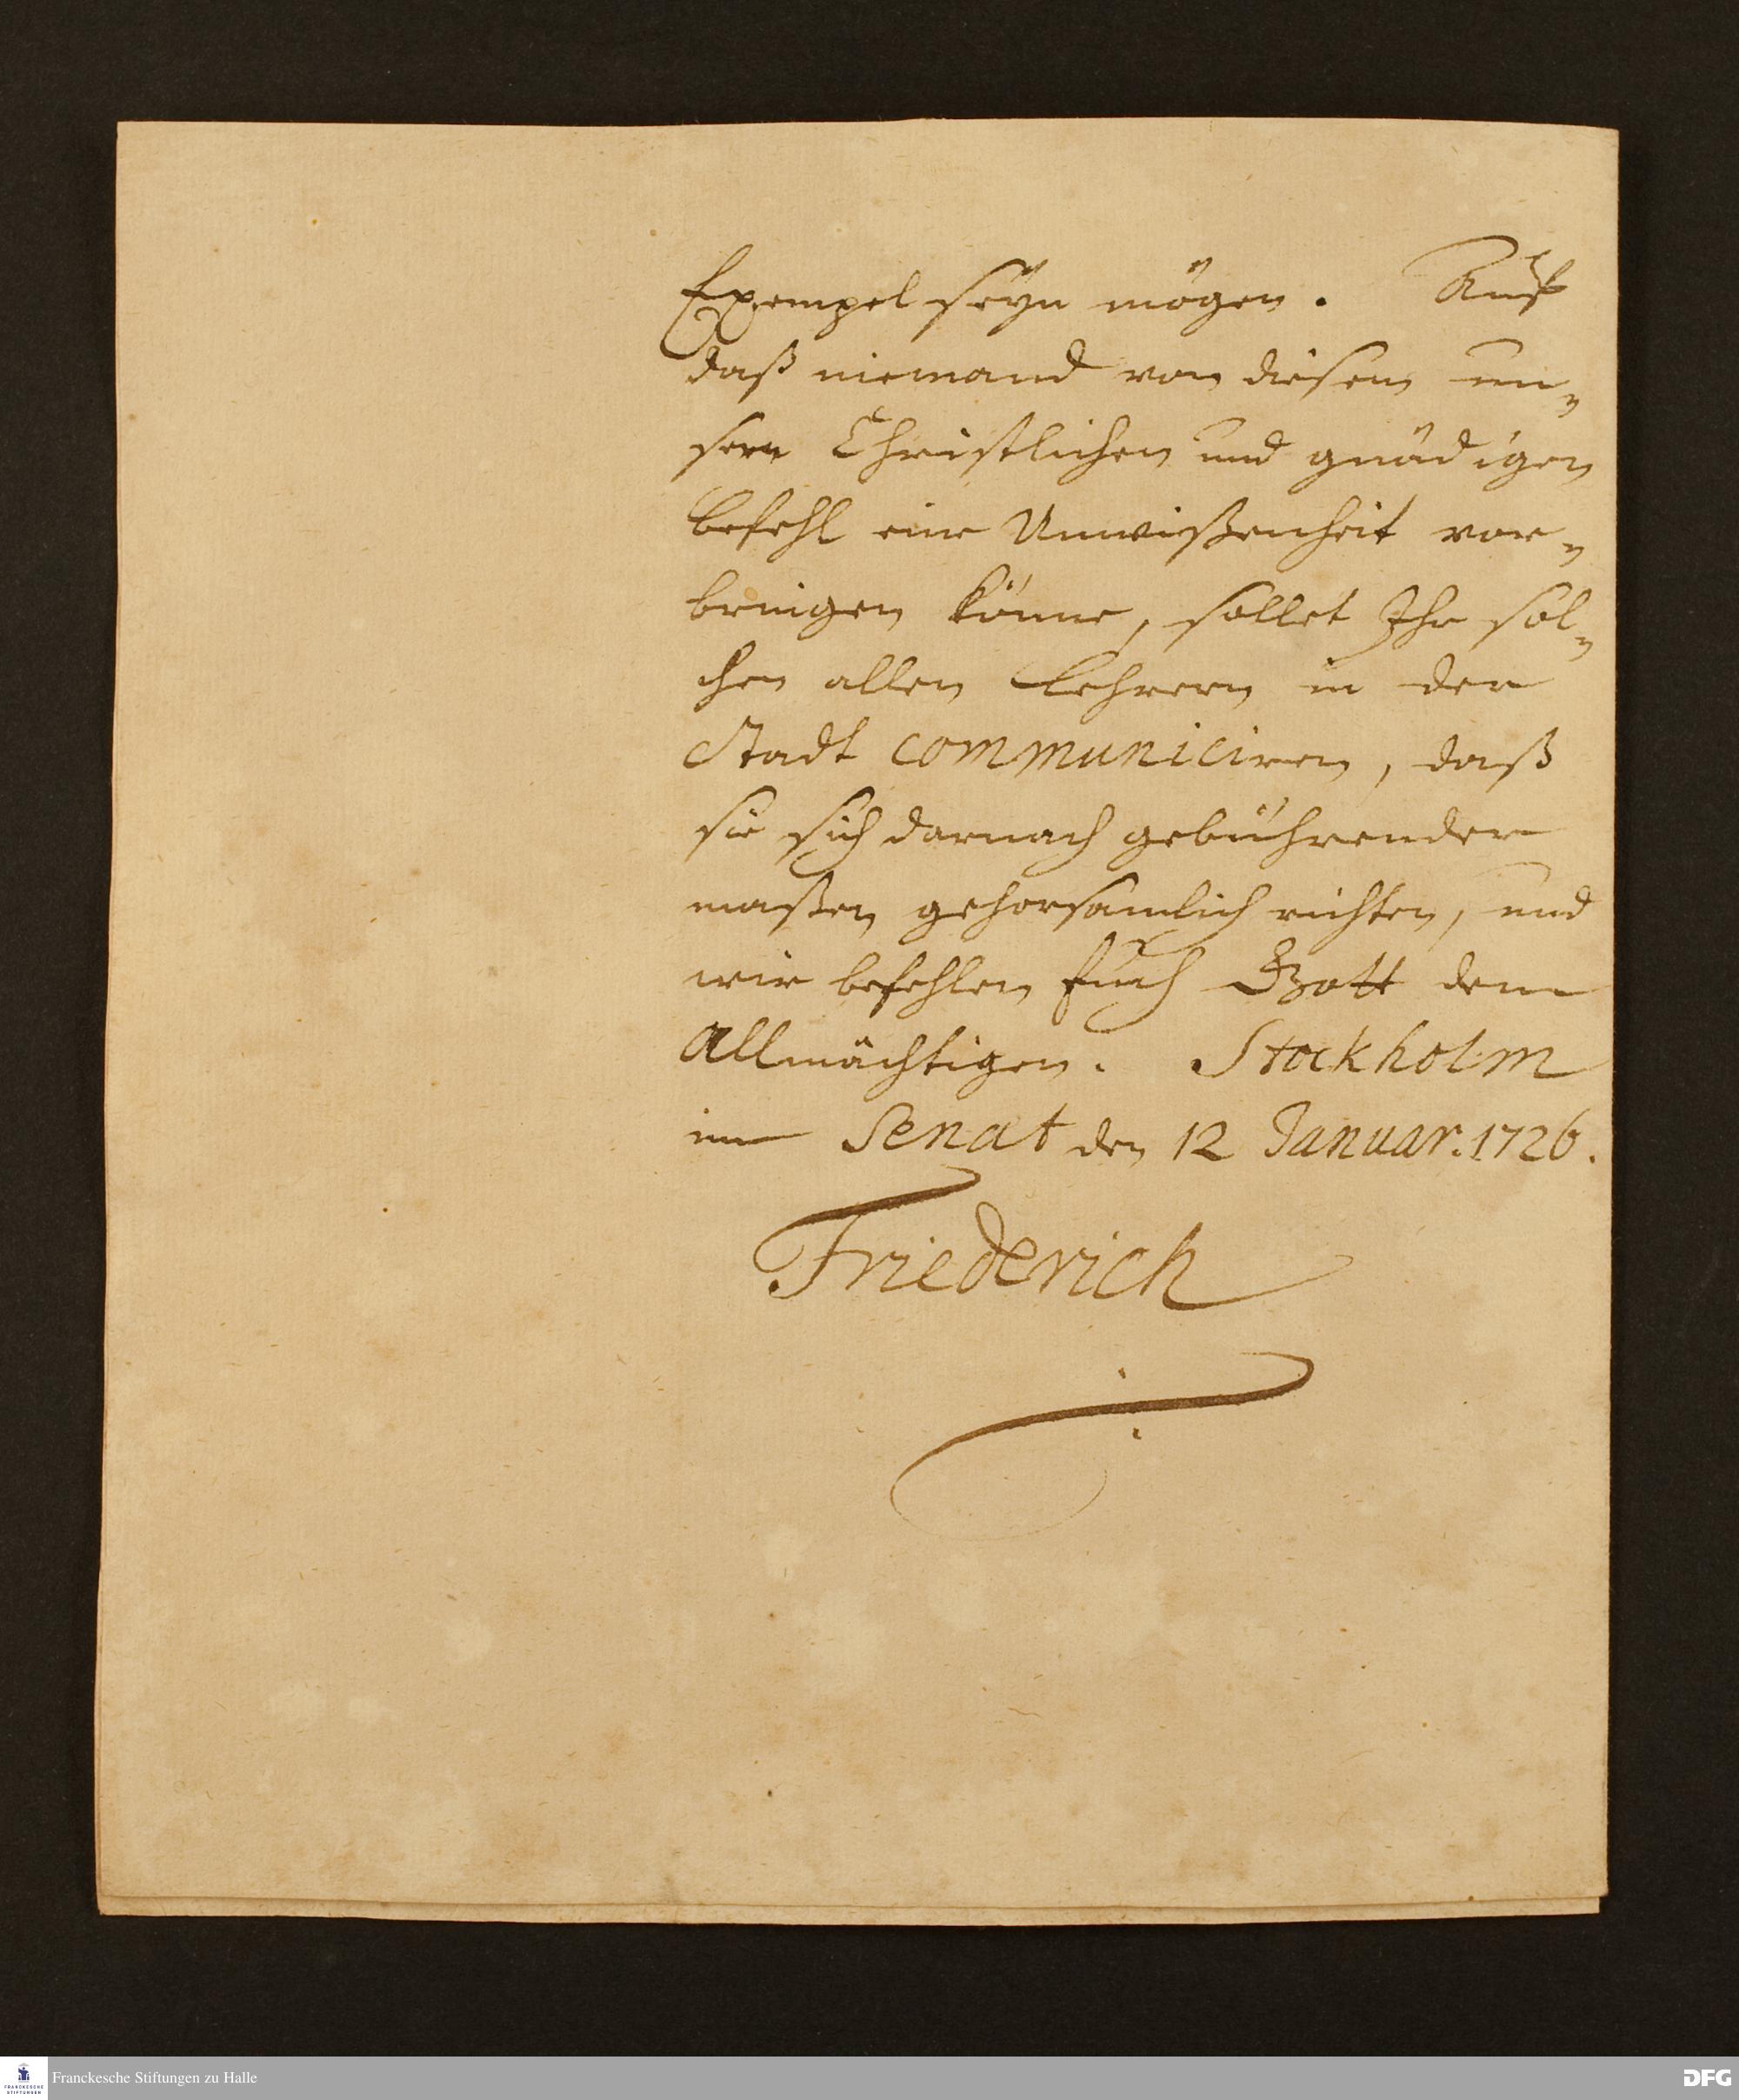 Exempel seÿn mögen. Auf
daß niemand von diesem un-
sern Christlichen und gnädigen
befehl eine Unwißenheit vor-
bringen könne, sollet Ihr sol-
chen allen Lehrern in der
Stadt communiciren, daß
sie sich darnach gebührender
maßen gehorsamlich richten, und
wir befehlen Euch Gott dem
Allmächtigen. Stockholm
im Senat den 12 Januar. 1726.
Friederich
FRANCKESCHE
STIFTUNGEN
Franckesche Stiftungen zu Halle
DFG